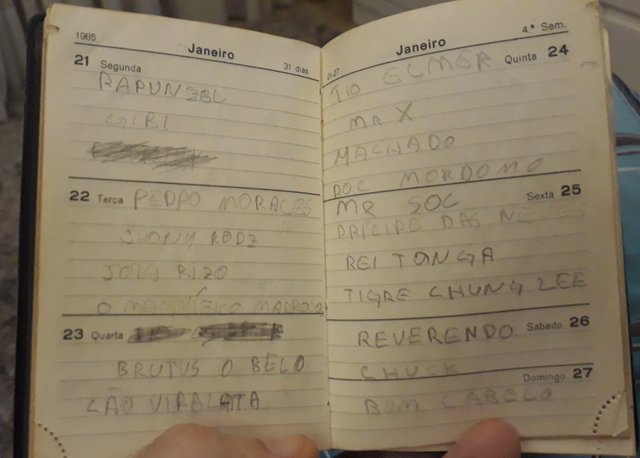 1985
Janeiro
21 Segunda
31 dias
RAPUNZEL
GIBI
22 Terça PEDRO MORALES
JIONY RODZ
JOIA RIZO
O MAGNÍFICO
23 Quarta
BRUTUS O BELO
CÃO VIRALATA
Janeiro
4.ª Sem.
21-27
Quinta 24
TIO ELMER
MR X
MACHADO
DOC MORDOMO
Sexta 25
MR SOC
PRÍCIPE DAS NEVES
REI TONGA
TIGRE CHUNG LEE
Sábado 26
REVERENDO
CHUCK
Domingo 27
BOM CABELO